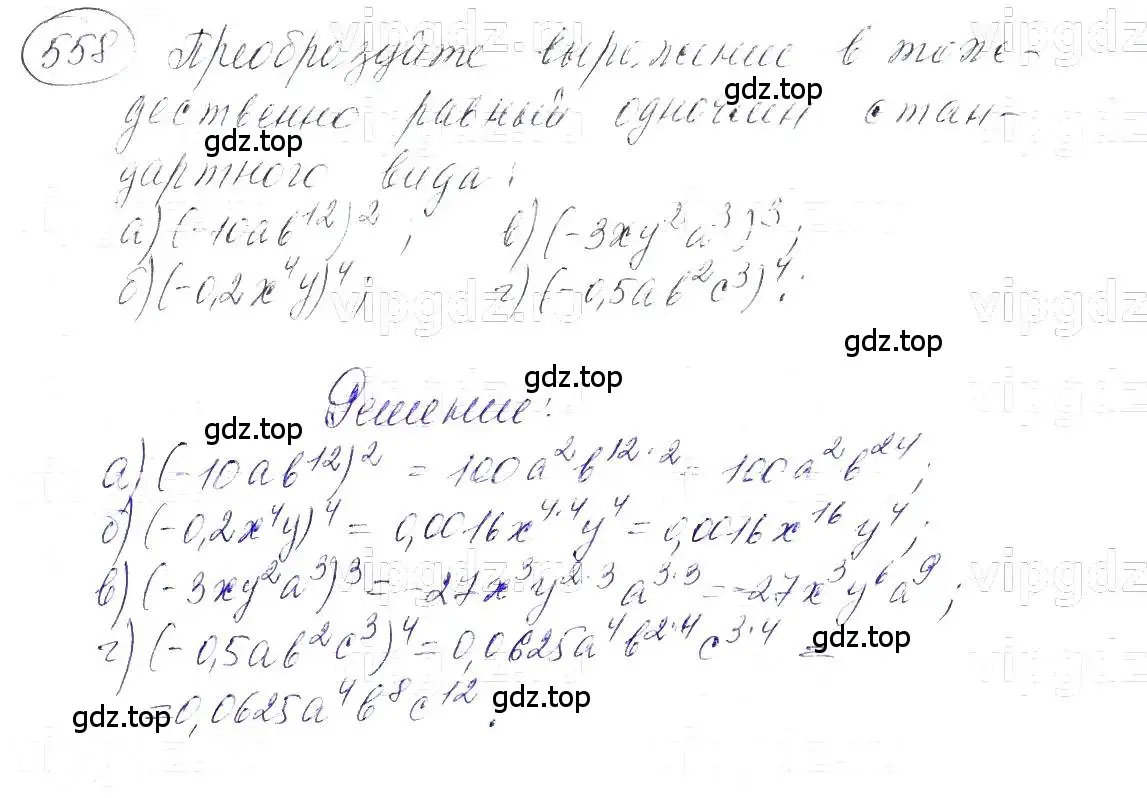 558 Преобразуйте выражение в тож-
дественно равный одночлен стан-
дартного вида:
а) (-10ab¹²)²; в) (-3xy²a³)³;
б) (-0,2x⁴y)⁴; г) (-0,5ab²c³)⁴.
Решение:
а) (-10ab¹²)² = 100a²b¹²·² = 100a²b²⁴;
б) (-0,2x⁴y)⁴ = 0,0016x⁴·⁴y⁴ = 0,0016x¹⁶y⁴;
в) (-3xy²a³)³ = -27x³y²·³a³·³ = -27x³y⁶a⁹;
г) (-0,5ab²c³)⁴ = 0,0625a⁴b²·⁴c³·⁴ =
= 0,0625a⁴b⁸c¹².
gdz.top
gdz.top
gdz.top
gdz.top
gdz.top
gdz.top
gdz.top
gdz.top
vipgdz.ru
vipgdz.ru
vipgdz.ru
vipgdz.ru